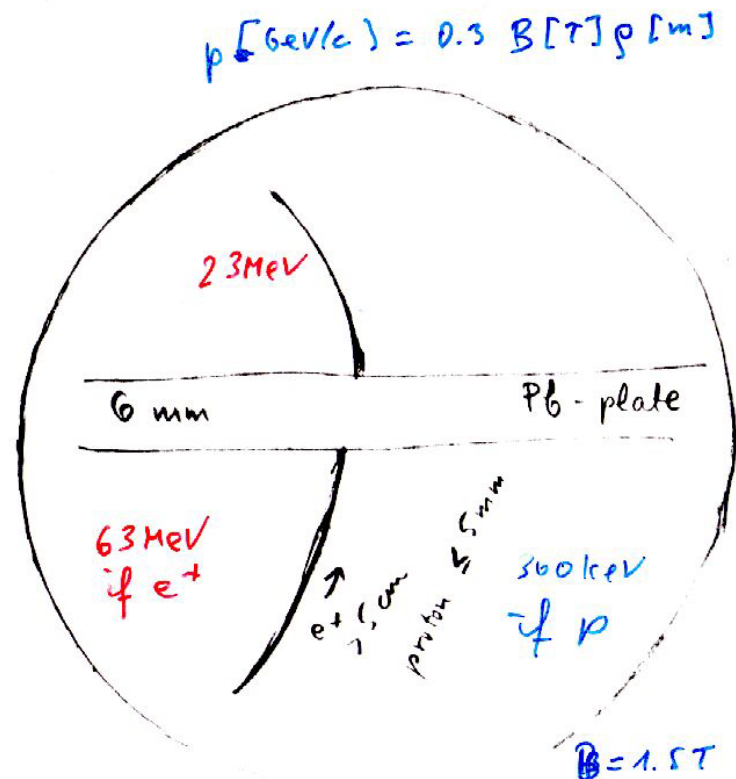 p [GeV/c) = 0.3 B[T] ρ [m]
23 MeV
6 mm
Pb - plate
63 MeV
if e+
e+ > 5 cm
proton ≤ 5 mm
300 keV
if p
B = 1.5 T